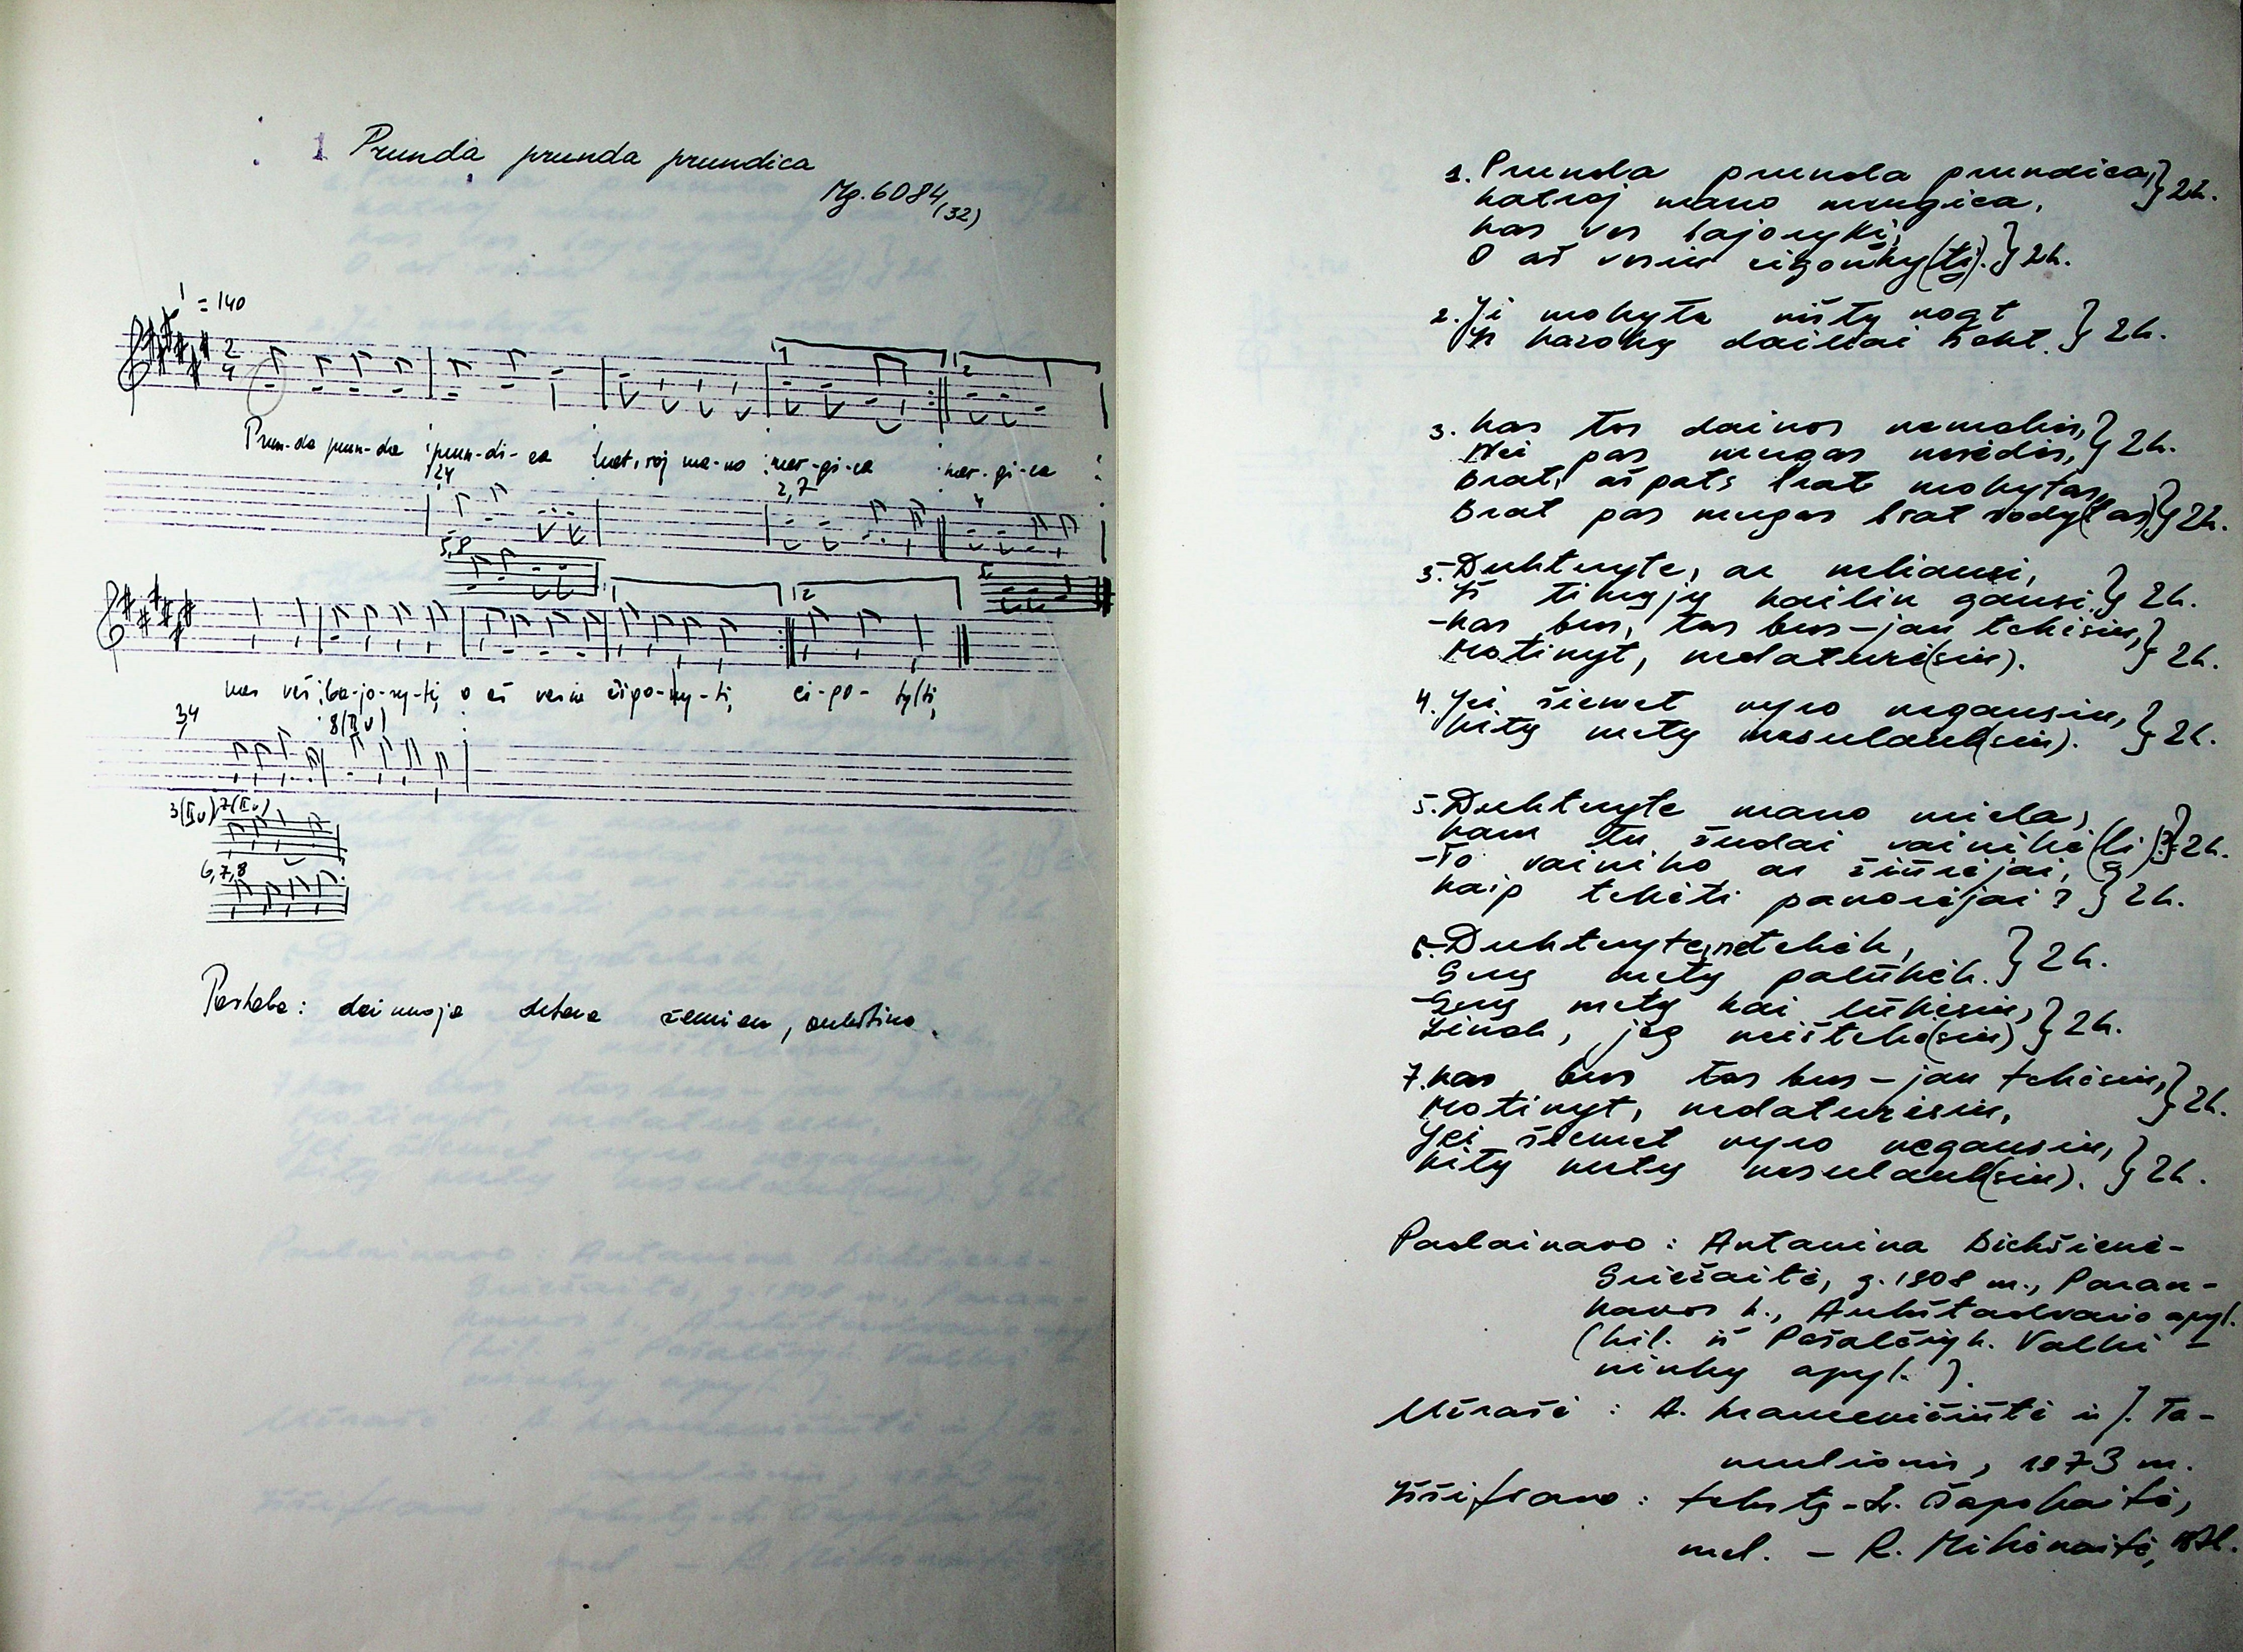 1 Prunda prunda prundica
Mg. 6084 (32)
= 140
2
4
1
2
Prun-da prun-da prun-di-ca kat, roj ma-no mer-gi-ca mer-gi-ca
2,4
2,7
4
5,8
1
2
5
mes veš ba-jo-ry-ti, o aš vesiu čigo-ny-ti, či-go-
3,4
8(II v)
3(II v) 7(II v)
6,7,8
Pastaba: dainuoja žemiau, aukština.
1. Prunda prunda prundica, } 2k.
katroj mano mergica,
kas ves bajorykį,
O aš vesiu cigonky(tį). } 2k.
2. Ji mokyta rūtų nogt } 2k.
Ir kazokų dailiai šokt.
3. kas tos dainos nemokės, } 2k.
Nei pas mergas nesėdės,
Brat, aš pats brat mokytas,
Brat pas mergas brat vody(tas) } 2k.
3. Dukteryte, ar neliausi, } 2k.
Iš tikrųjų kailin gausi.
-kas bus, tas bus-jau tekėsiu, } 2k.
Motinyt, nedaturė(siu).
4. Jei šiemet vyro negausiu, } 2k.
kitų metų nesulauk(siu).
5. Dukteryte mano miela,
kam tu žudai vainikė(lį)? } 2k.
-To vainiko ar žiūrėjai,
kaip tekėti panorėjai? } 2k.
6. Dukteryte, netekėk, } 2k.
Gerų metų palūkėk.
-Gerų metų kai lūkėsiu, } 2k.
Žinok, jog neištekė(siu)
7. kas bus tas bus-jau tekėsiu, } 2k.
Motinyt, nedaturėsiu,
Jei šiemet vyro negausiu, } 2k.
kitų metų nesulauk(siu).
Padainavo: Antanina Bickšienė-
Griežaitė, g. 1908 m., Paran-
kavos k., Aukštadvario apyl.
(kil. iš Pašalčių k. Valki-
ninkų apyl.).
Užrašė: A. ir J. Ta-
mulionis, 1973 m.
Iššifravo: tekstą - Čapskaitė,
mel. - R. Mikėnaitė,